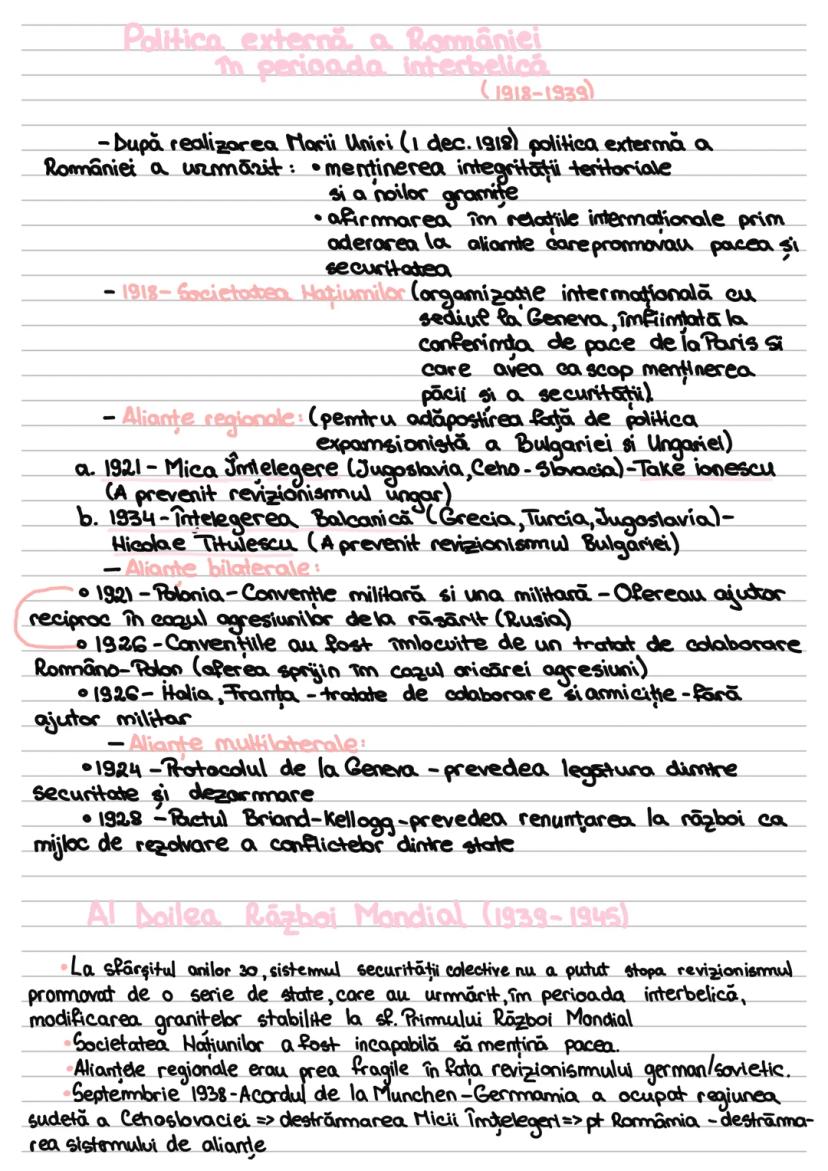 Politica externă a României
în perioada interbelică
(1918-1939)
- După realizarea Marii Uniri (1 dec. 1918) politica externă a
României a urmărit: • menținerea integrității teritoriale
si a noilor granițe
• afirmarea în relațiile internaționale prin
aderarea la aliante care promovau pacea și
securitatea
- 1918 - Societatea Națiunilor (organizație internațională cu
sediul la Geneva, înființată la
conferința de pace de la Paris si
care avea ca scop menținerea
păcii și a securității)
- Alianțe regionale: (pentru adăpostirea față de politica
expansionistă a Bulgariei si Ungariei)
a. 1921 - Mica Înțelegere (Jugoslavia, Ceho-Slovacia) - Take ionescu
(A prevenit revizionismul ungar)
b. 1934 - Înțelegerea Balcanică (Grecia, Turcia, Jugoslavia) -
Nicolae Titulescu (A prevenit revizionismul Bulgariei)
- Aliante bilaterale:
• 1921 - Polonia - Convenție militară si una militară - Ofereau ajutor
reciproc în cazul agresiunilor de la răsărit (Rusia)
• 1926 - Convențiile au fost înlocuite de un tratat de colaborare
Româno-Polon (oferea sprijin în cazul oricărei agresiuni)
• 1926 - Italia, Franța - tratate de colaborare si amiciție - fără
ajutor militar
- Alianțe multilaterale:
• 1924 - Protocolul de la Geneva - prevedea legătura dintre
securitate și dezarmare
• 1928 - Pactul Briand-Kellogg - prevedea renunțarea la război ca
mijloc de rezolvare a conflictelor dintre state
Al Doilea Război Mondial (1939-1945)
• La sfârșitul anilor 30, sistemul securității colective nu a putut stopa revizionismul
promovat de o serie de state, care au urmărit, în perioada interbelică,
modificarea granitelor stabilite la sf. Primului Război Mondial
• Societatea Națiunilor a fost incapabilă să mențină pacea.
• Alianțele regionale erau prea fragile în fața revizionismului german/sovietic.
• Septembrie 1938 - Acordul de la Munchen - Germania a ocupat regiunea
sudetă a Cehoslovaciei => destrămarea Micii Înțelegeri => pt România - destrăma-
rea sistemului de alianțe